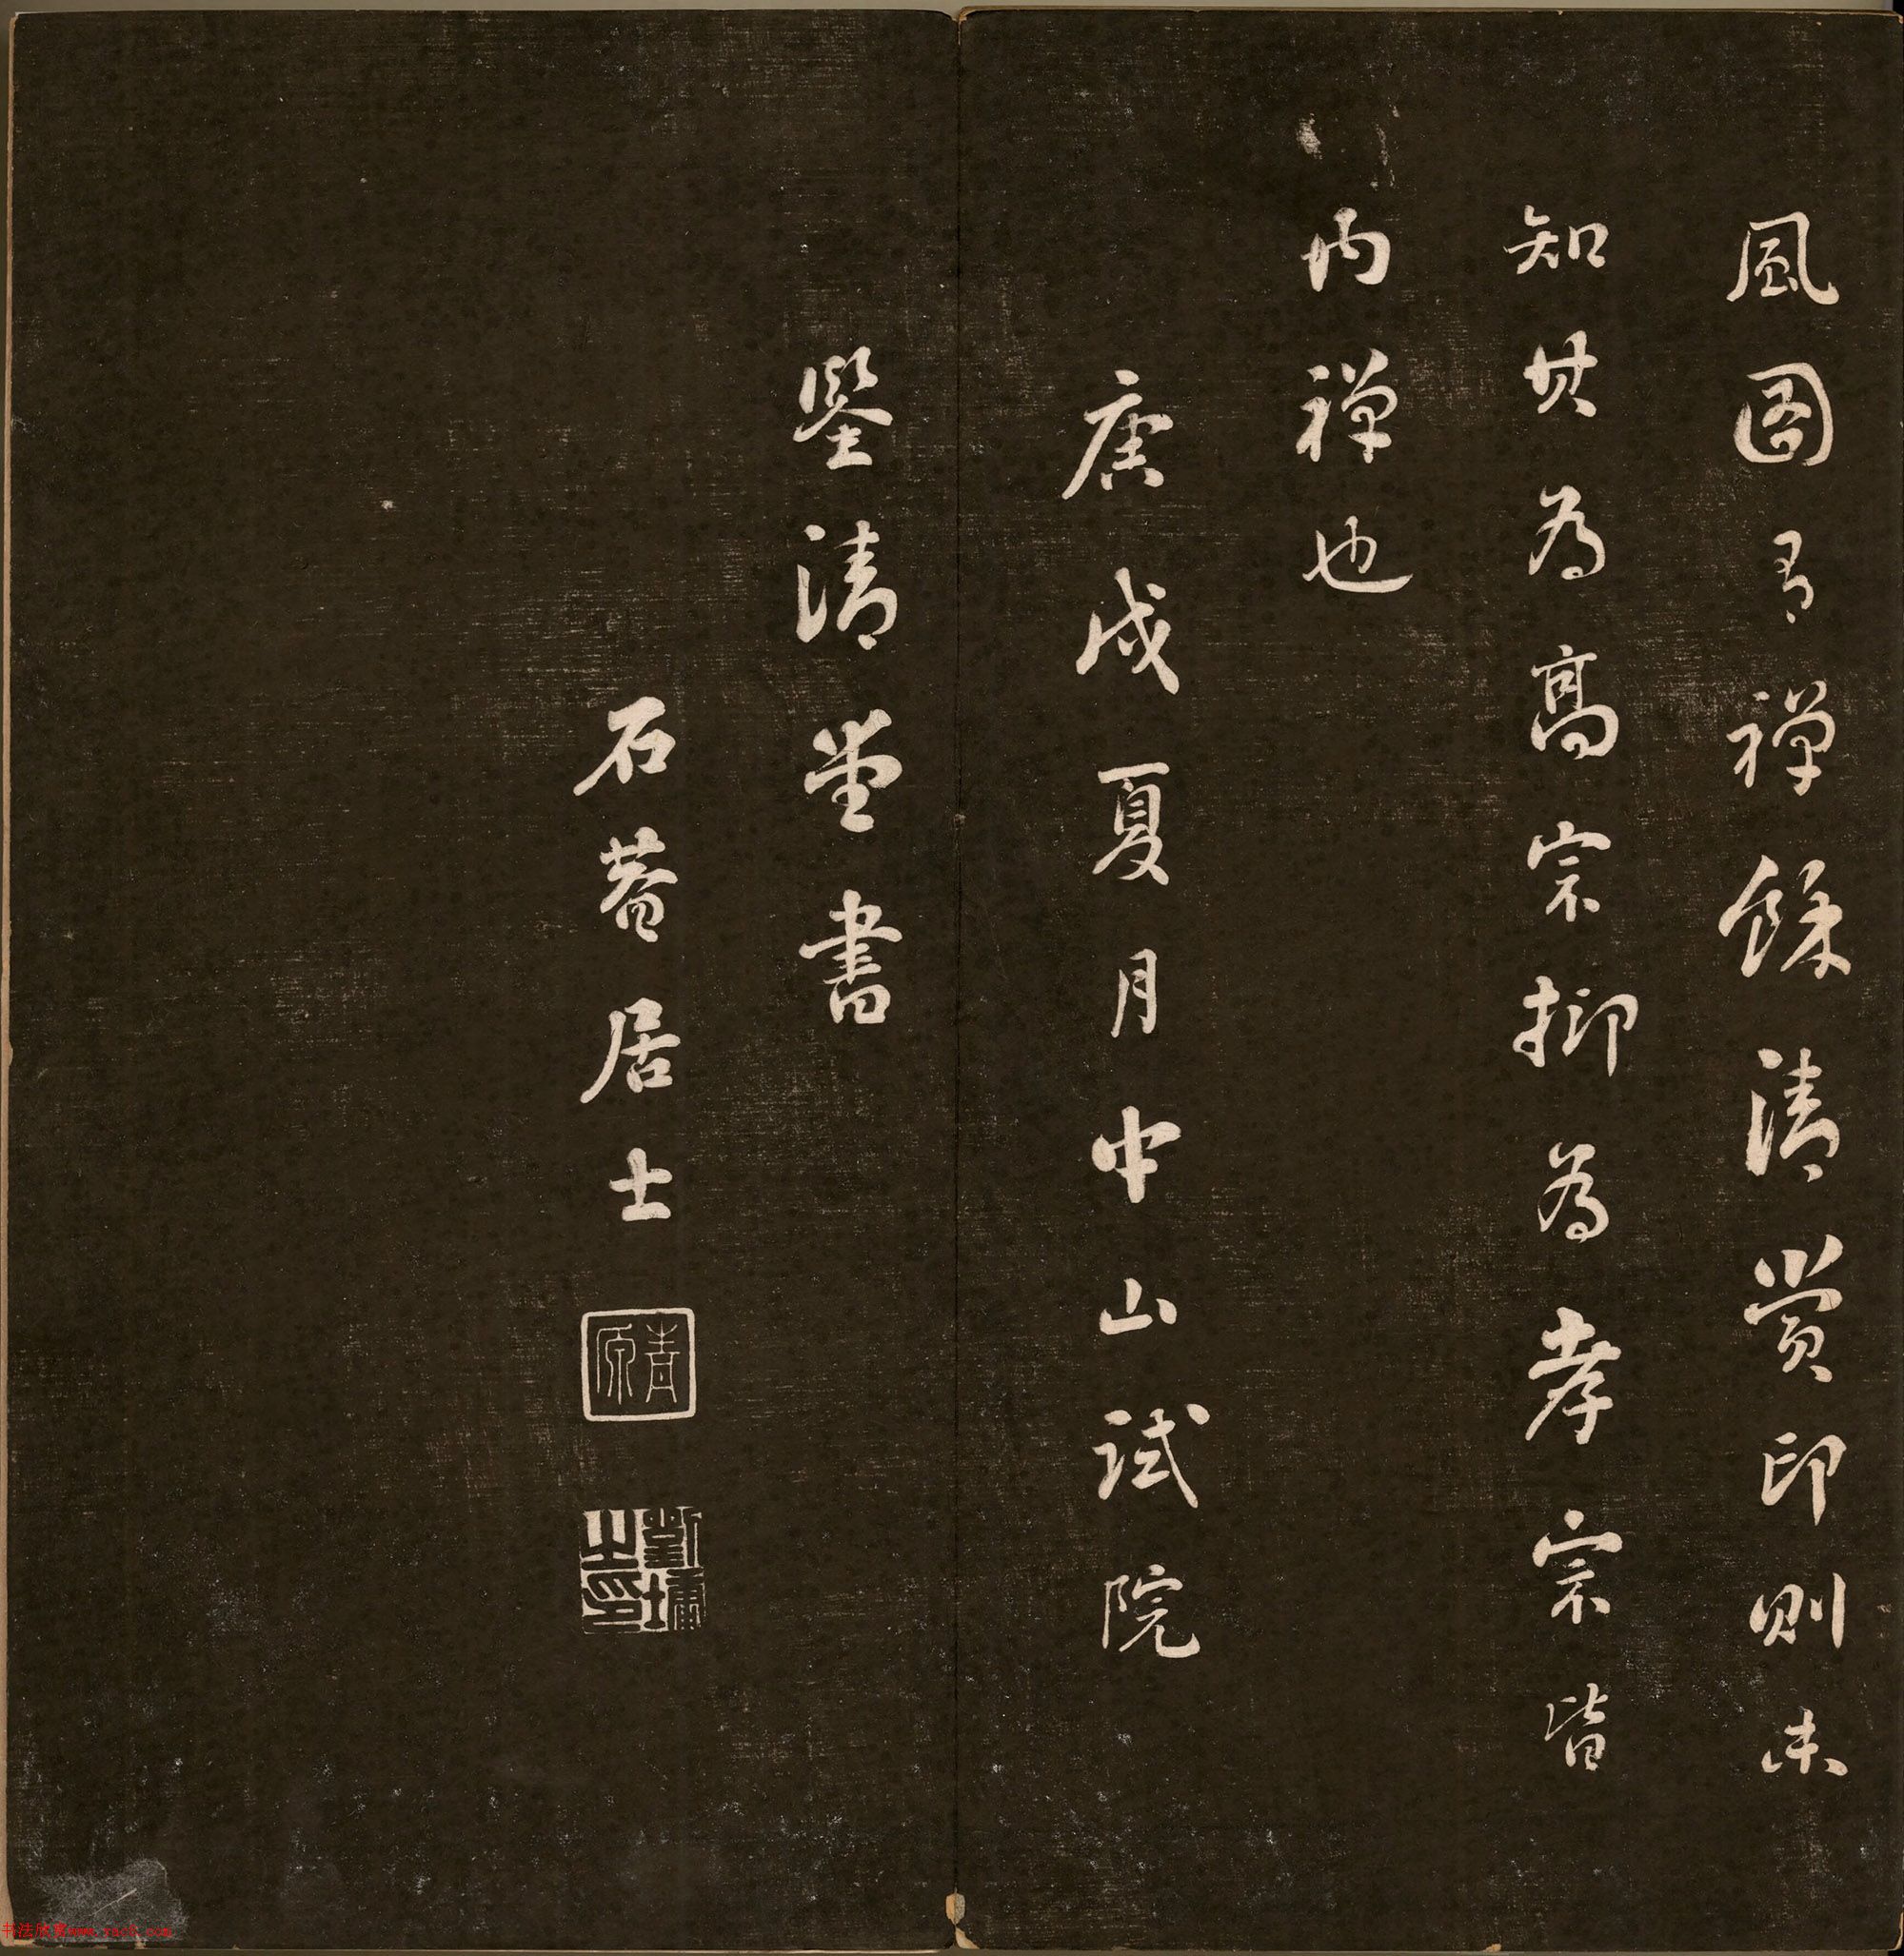 風圖有禪餘清賞印則未
知其為高宗抑為孝宗皆
內禪也
庚戌夏月中山試院
鑒清堂書
石菴居士
青原
劉墉之印